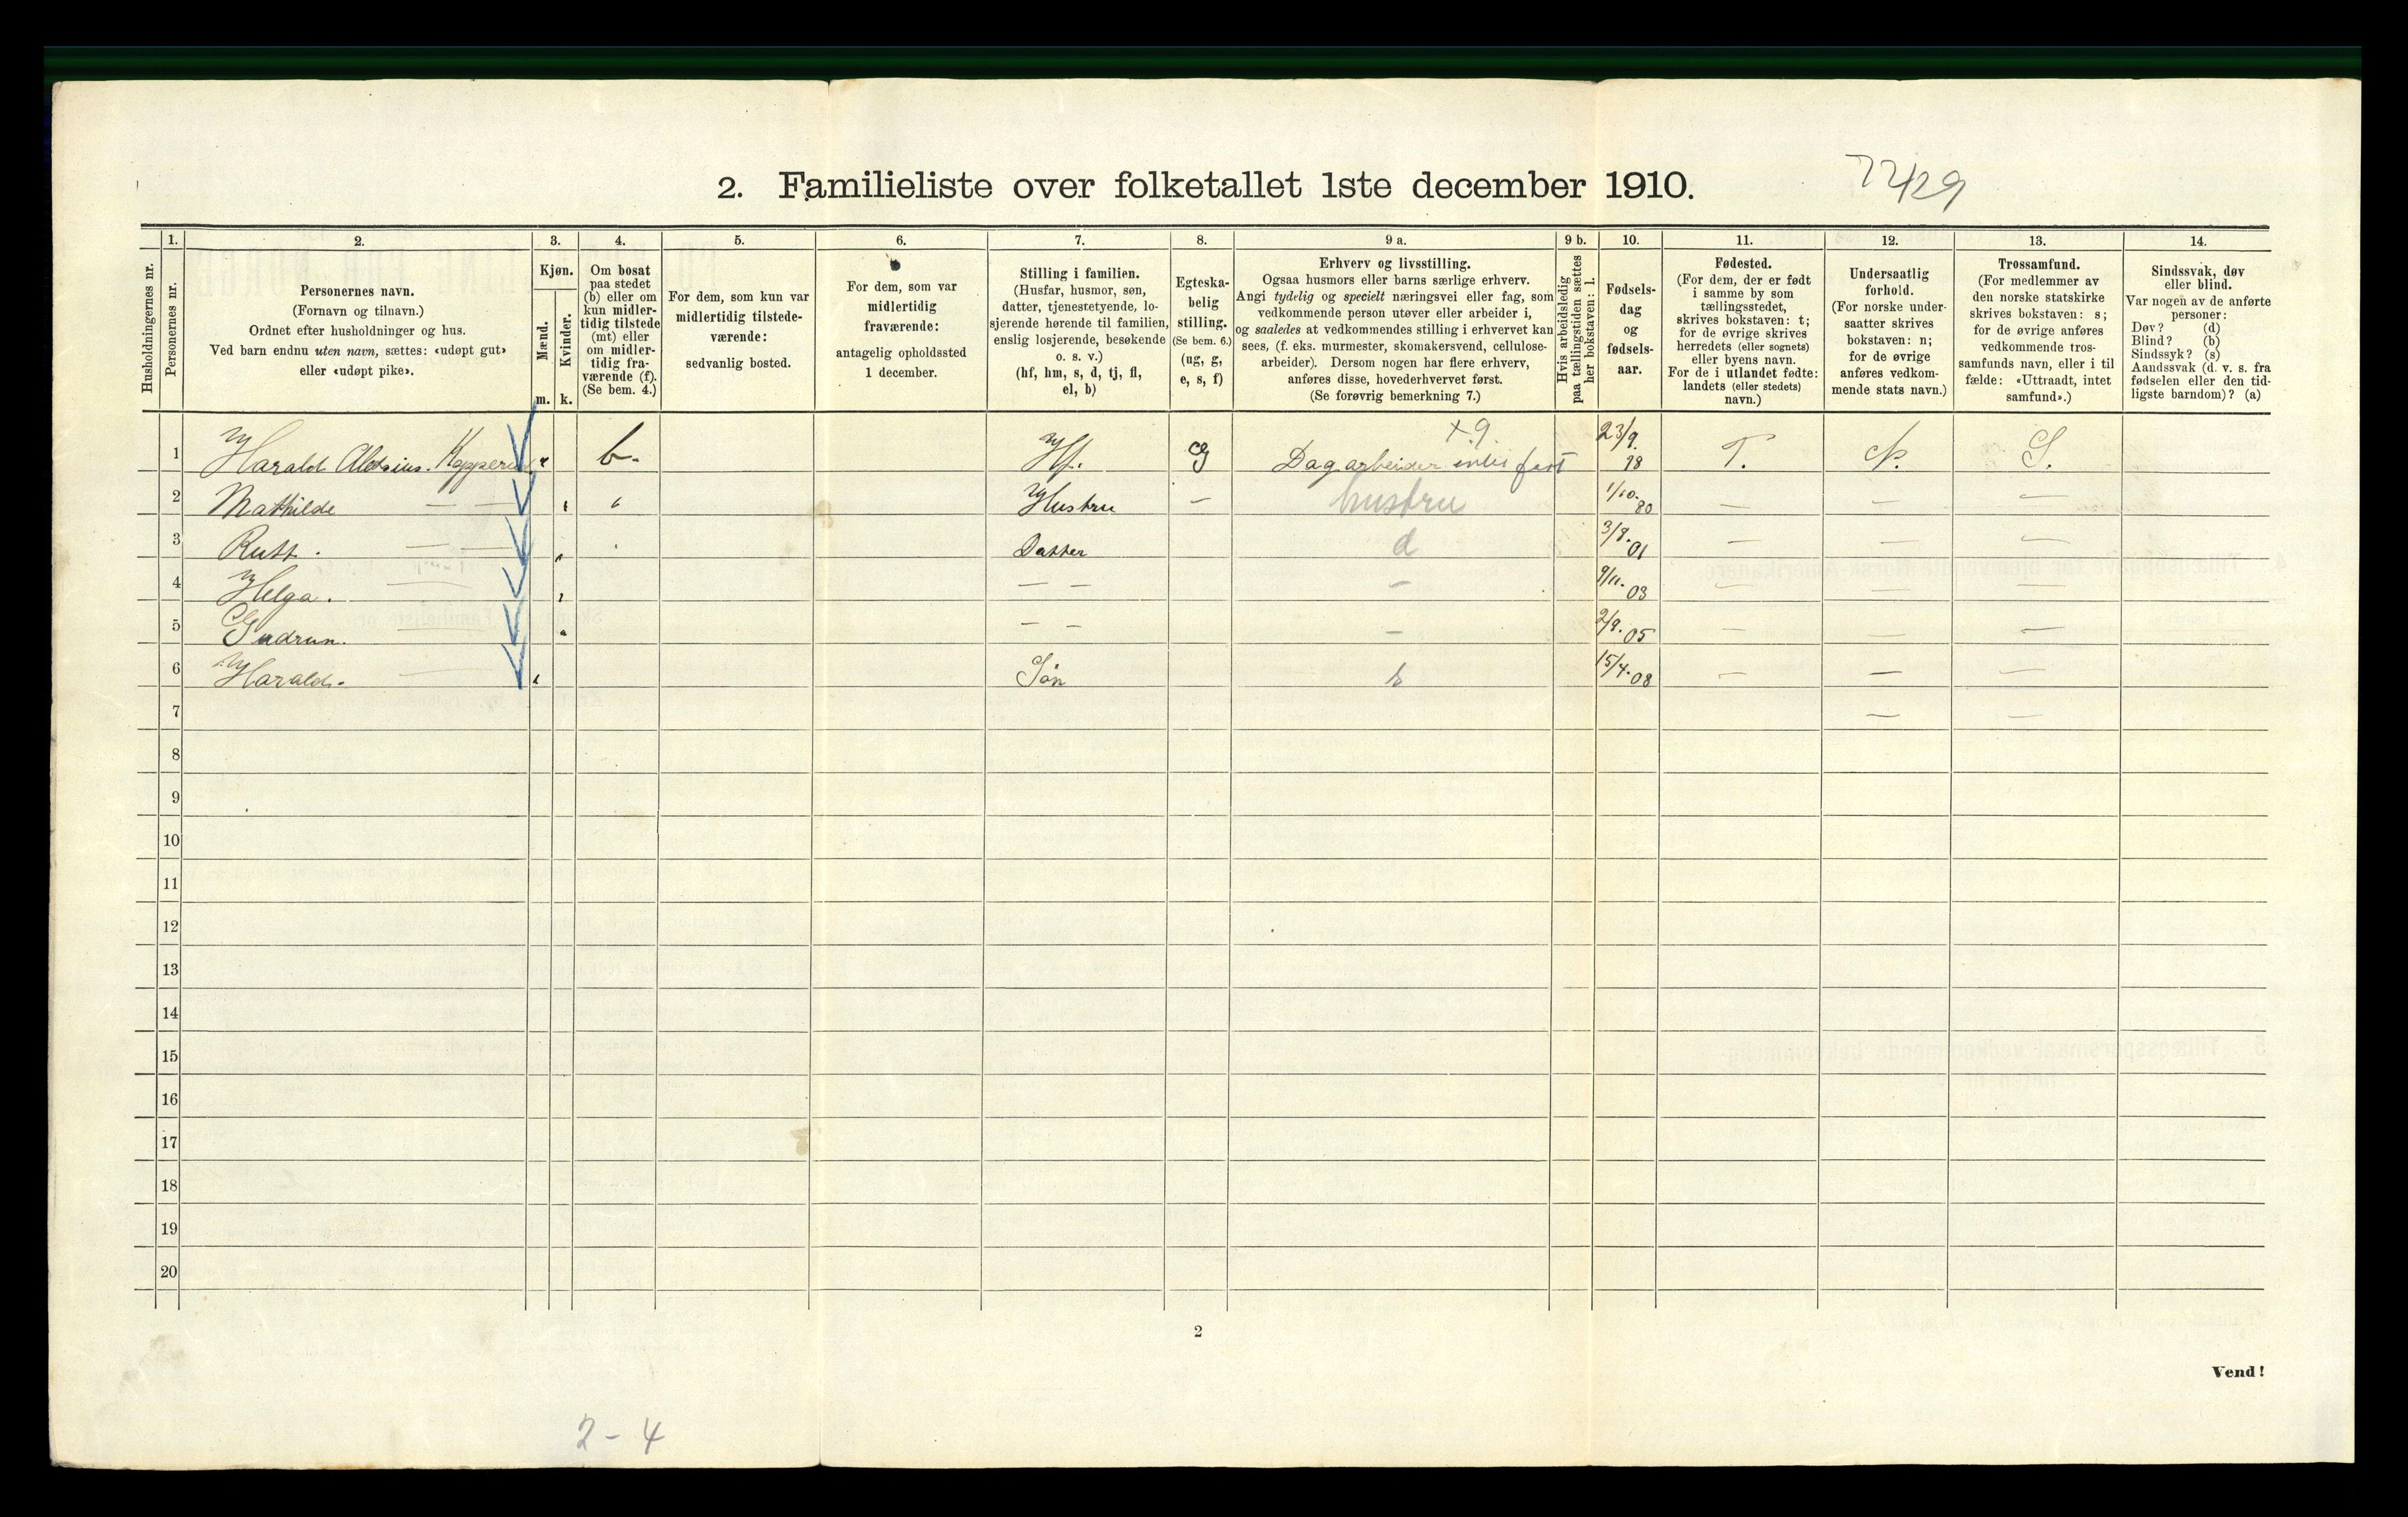 2. Familieliste over folketallet 1ste december 1910.
7429
Husholdningernes nr.
1.
Personernes nr.
2.
Personernes navn.
(Fornavn og tilnavn.)
Ordnet efter husholdninger og hus.
Ved barn endnu uten navn, sættes: «udøpt gut»
eller «udøpt pike».
3.
Kjøn.
Mænd.
Kvinder.
m. k.
4.
Om bosat
paa stedet
(b) eller om
kun midler-
tidig tilstede
(mt) eller
om midler-
tidig fra-
værende (f).
(Se bem. 4.)
5.
For dem, som kun var
midlertidig tilstede-
værende:
sedvanlig bosted.
6.
For dem, som var
midlertidig
fraværende:
antagelig opholdssted
1 december.
7.
Stilling i familien.
(Husfar, husmor, søn,
datter, tjenestetyende, lo-
sjerende hørende til familien,
enslig losjerende, besøkende
o. s. v.)
(hf, hm, s, d, tj, fl,
el, b)
8.
Egteska-
belig
stilling.
(Se bem. 6.)
(ug, g,
e, s, f)
9 a.
Erhverv og livsstilling.
Ogsaa husmors eller barns særlige erhverv.
Angi tydelig og specielt næringsvei eller fag, som
vedkommende person utøver eller arbeider i,
og saaledes at vedkommendes stilling i erhvervet kan
sees, (f. eks. murmester, skomakersvend, cellulose-
arbeider). Dersom nogen har flere erhverv,
anføres disse, hovederhvervet først.
(Se forøvrig bemerkning 7.)
9 b.
Hvis arbeidsledig
paa tællingstiden sættes
her bokstaven: l.
10.
Fødsels-
dag
og
fødsels-
aar.
11.
Fødested.
(For dem, der er født
i samme by som
tællingsstedet,
skrives bokstaven: t;
for de øvrige skrives
herredets (eller sognets)
eller byens navn.
For de i utlandet fødte:
landets (eller stedets)
navn.)
12.
Undersaatlig
forhold.
(For norske under-
saatter skrives
bokstaven: n;
for de øvrige
anføres vedkom-
mende stats navn.)
13.
Trossamfund.
(For medlemmer av
den norske statskirke
skrives bokstaven: s;
for de øvrige anføres
vedkommende tros-
samfunds navn, eller i til
fælde: «Uttraadt, intet
samfund».)
14.
Sindssvak, døv
eller blind.
Var nogen av de anførte
personer:
Døv? (d)
Blind? (b)
Sindssyk? (s)
Aandssvak (d. v. s. fra
fødselen eller den tid-
ligste barndom)? (a)
1 Harald b. Hf. g + 9. Dagarbeider intet fast 23/9. 78 T. N. S.
2 Mathilde — — Hustru — hustru 1/10. 80 — — —
3 Rutt. — — Datter d 3/8. 01 — — —
4 Helga. — — — — 9/11. 03 — — —
5 Gudrun. — — — — 2/9. 05 — — —
6 Harald. — Søn s 15/4. 08 — — —
7 — —
8
9
10
11
12
13
14
15
16
17
18
19
20
2
Vend!
2-4